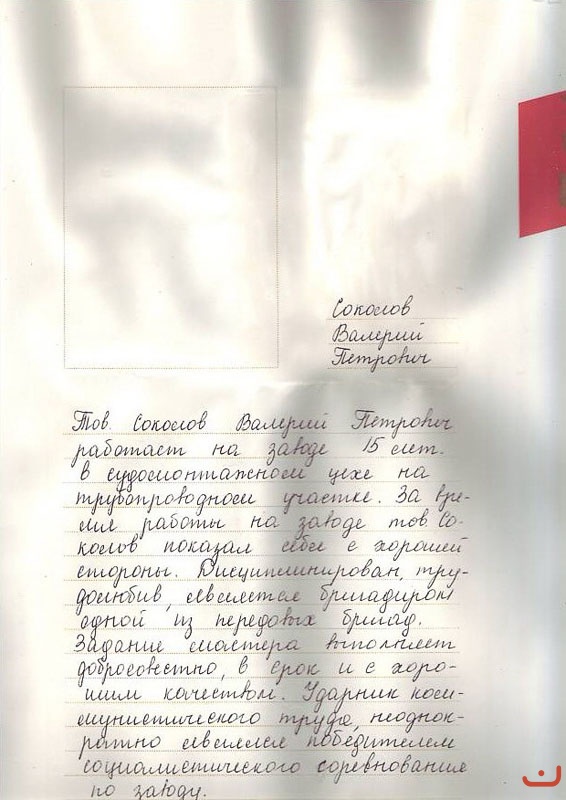 Соколов
Валерий
Петрович
Тов. Соколов Валерий Петрович
работает на заводе 15 лет.
в судомонтажном цехе на
трубопроводном участке. За вре-
мя работы на заводе тов. Со-
колов показал себя с хорошей
стороны. Дисциплинирован, тру-
долюбив, является бригадиром
одной из передовых бригад.
Задание мастера выполняет
добросовестно, в срок и с хоро-
шим качеством. Ударник ком-
мунистического труда, неоднок-
ратно являлся победителем
социалистического соревнования
по заводу.